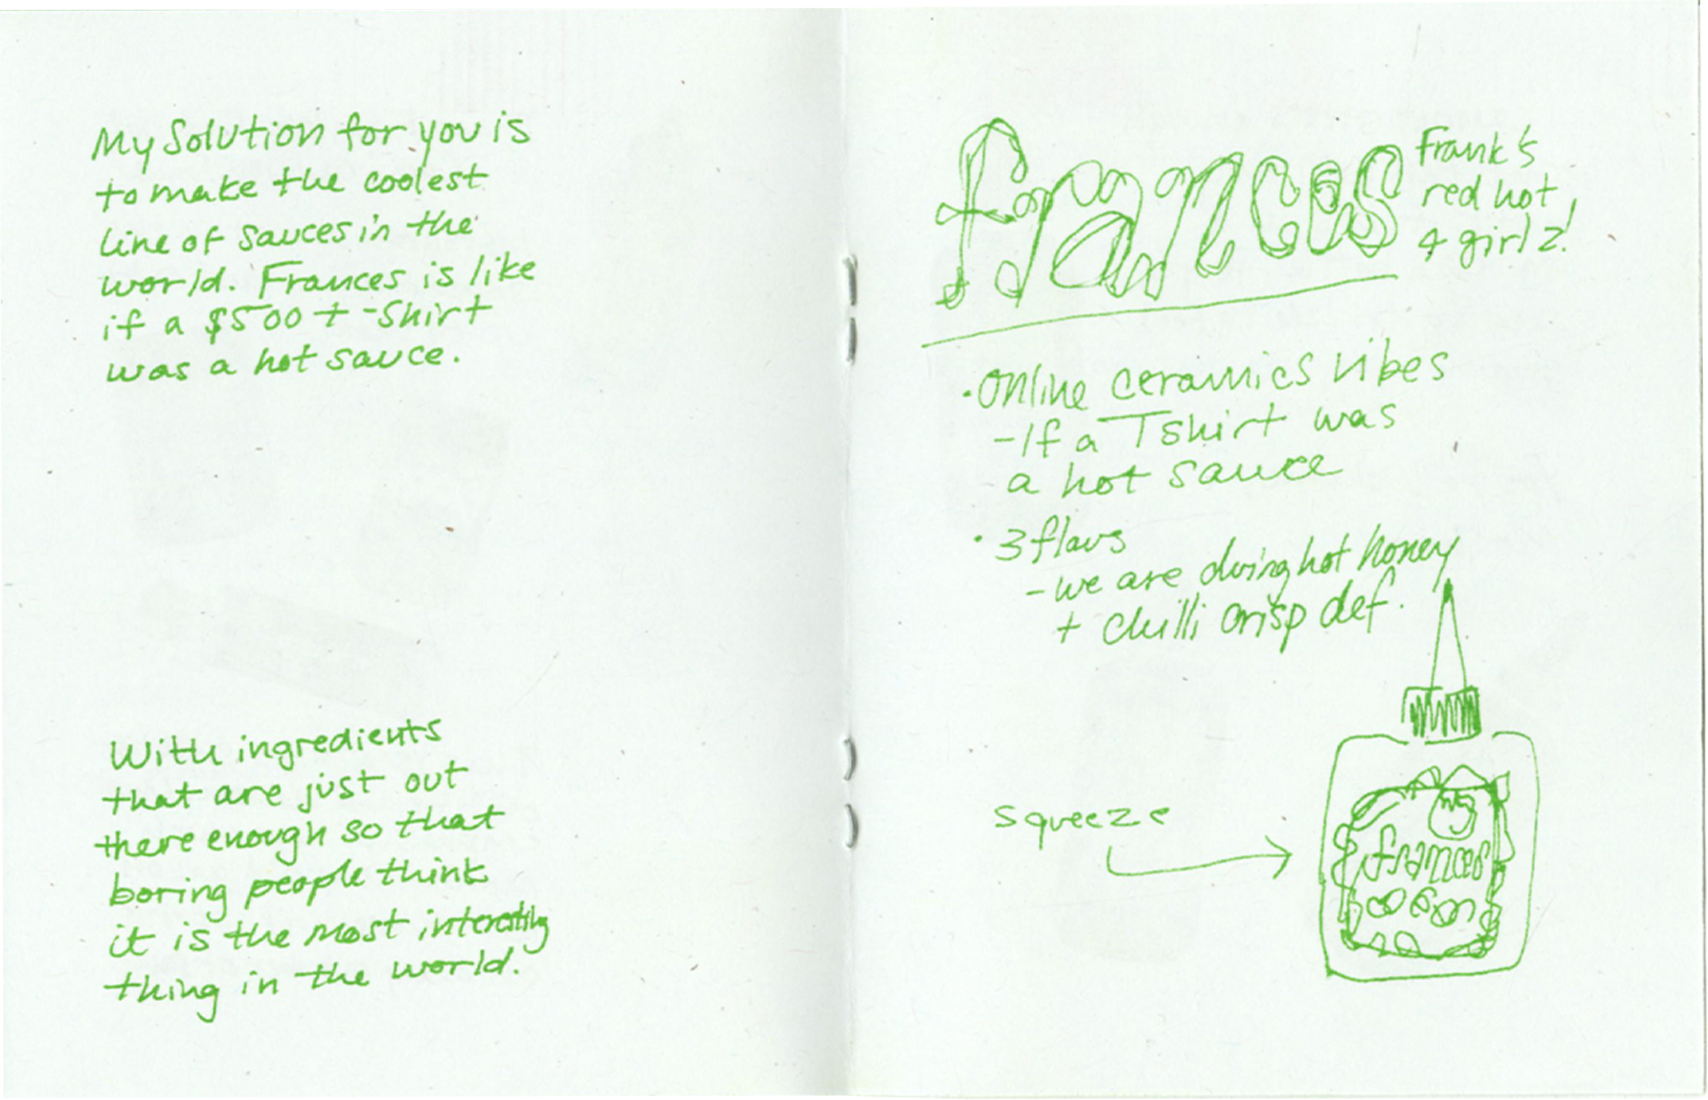 My Solution for you is
to make the coolest
line of sauces in the
world. Frances is like
if a $500 t-shirt
was a hot sauce.
With ingredients
that are just out
there enough so that
boring people think
it is the most interesting
thing in the world.
frances
Frank's
red hot
4 girlz!
• Online ceramics vibes
- If a Tshirt was
a hot sauce
• 3 flavs
- we are doing hot honey
+ chilli crisp def.
squeeze
frances